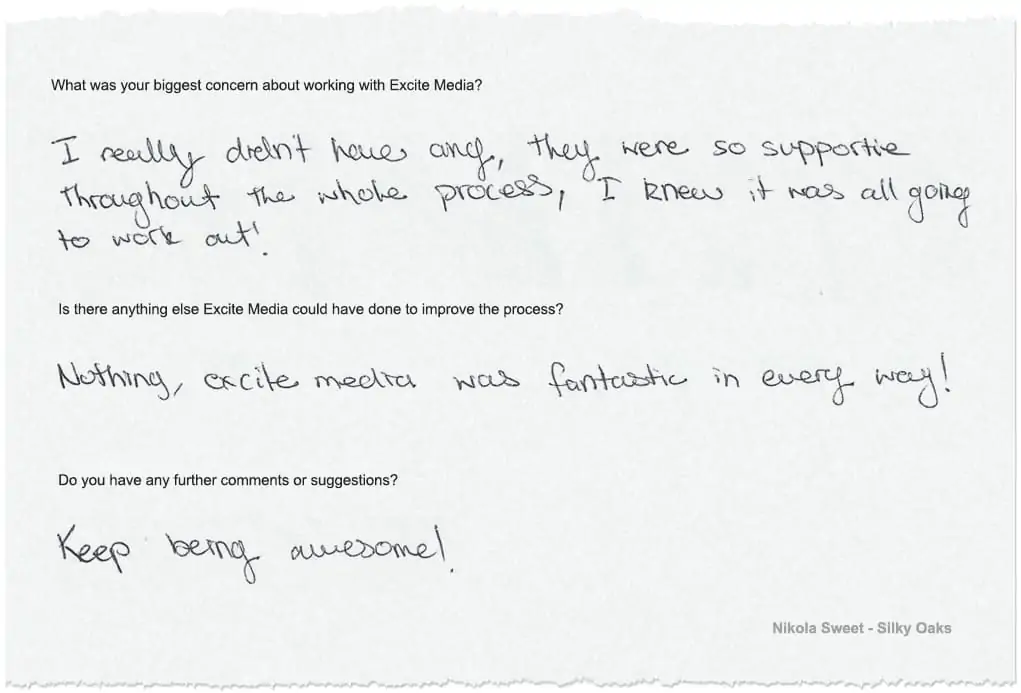 What was your biggest concern about working with Excite Media?
I really didn't have any, they were so supportie
throughout the whole process, I knew it was all going
to work out!
Is there anything else Excite Media could have done to improve the process?
Nothing, excite media was fantastic in every way!
Do you have any further comments or suggestions?
Keep being awesome!
Nikola Sweet - Silky Oaks